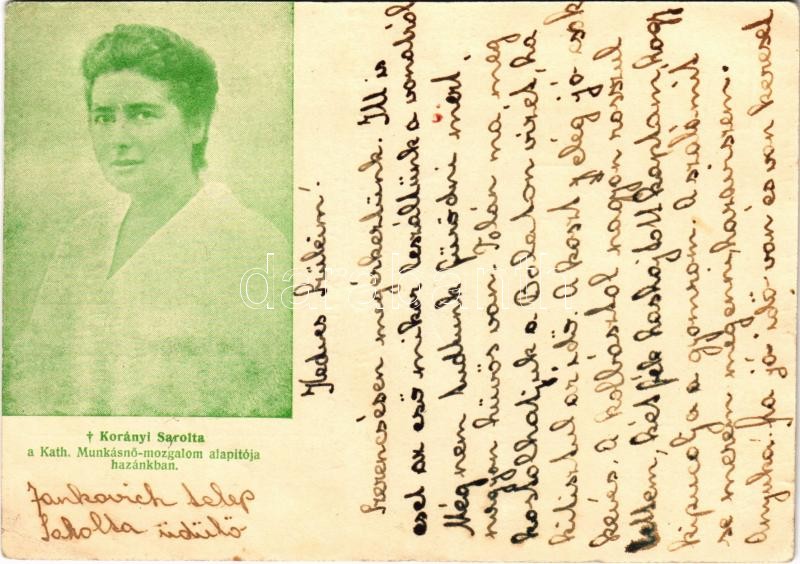 † Korányi Sarolta
a Kath. Munkásnő-mozgalom alapitója
hazánkban.
Jankovich telep
Sarolta üdülő
Kedves Szüleim!
Szerencsésen megérkeztünk. Itt is
esett az eső mikor leszálltunk a vonatról
Még nem tudtunk fürödni mert
nagyon hüvös van. Talán ma meg
kostolhatjuk a Balaton vizét, ha
kitisztul az idő. A koszt elég jó csak
kevés. A kolbásztol nagyon rosszul
lettem, kétféle hashajtott kaptam, hogy
kipucolja a gyomrom. A szalámit
se merem megenni, hazaviszem.
Anyuka! Ha jó idő van és van kereset
darabanth